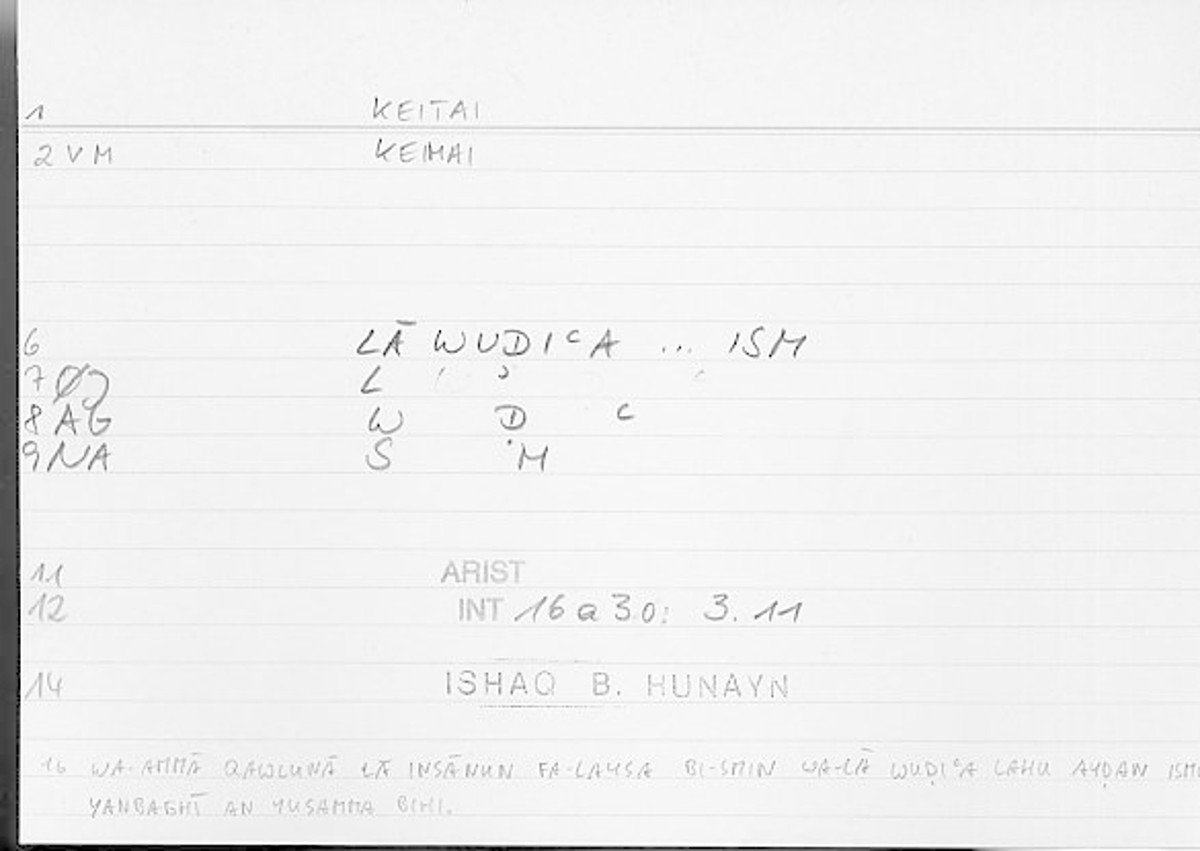 1 KEITAI
2 VM KEIMAI
6 LĀ WUDIᶜA ... ISM
7 Ø) L ʾ
8 AG W D ᶜ
9 NA S M
11 ARIST
12 INT 16 a 30: 3.11
14 ISHAQ B. HUNAYN
16 WA-AMMĀ QAWLUNĀ LĀ INSĀNUN FA-LAYSA BI-SMIN WA-LĀ WUḌIᶜA LAHU AYḌAN ISM
YANBAGHĪ AN YUSAMMA BIHI.